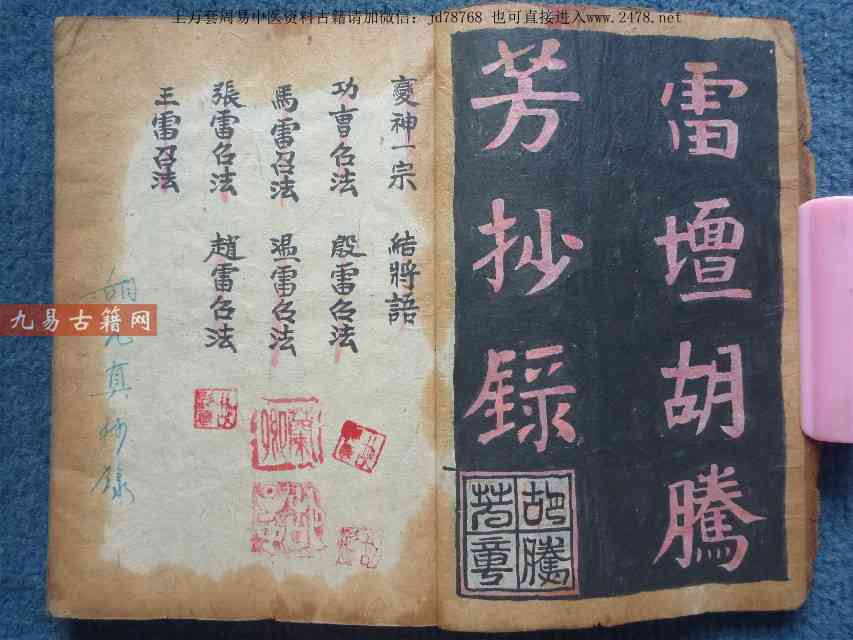 上万套周易中医资料古籍请加微信：jd78768 也可直接进入www.2478.net
雷壇胡騰
芳抄錄
胡騰
芳章
變神一宗 結將語
功曹召法 殷雷召法
馬雷召法 温雷召法
張雷召法 趙雷召法
王雷召法
真抄录
九易古籍网